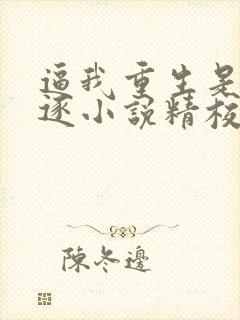 逼我重生是
逐小說精校
陳冬邊